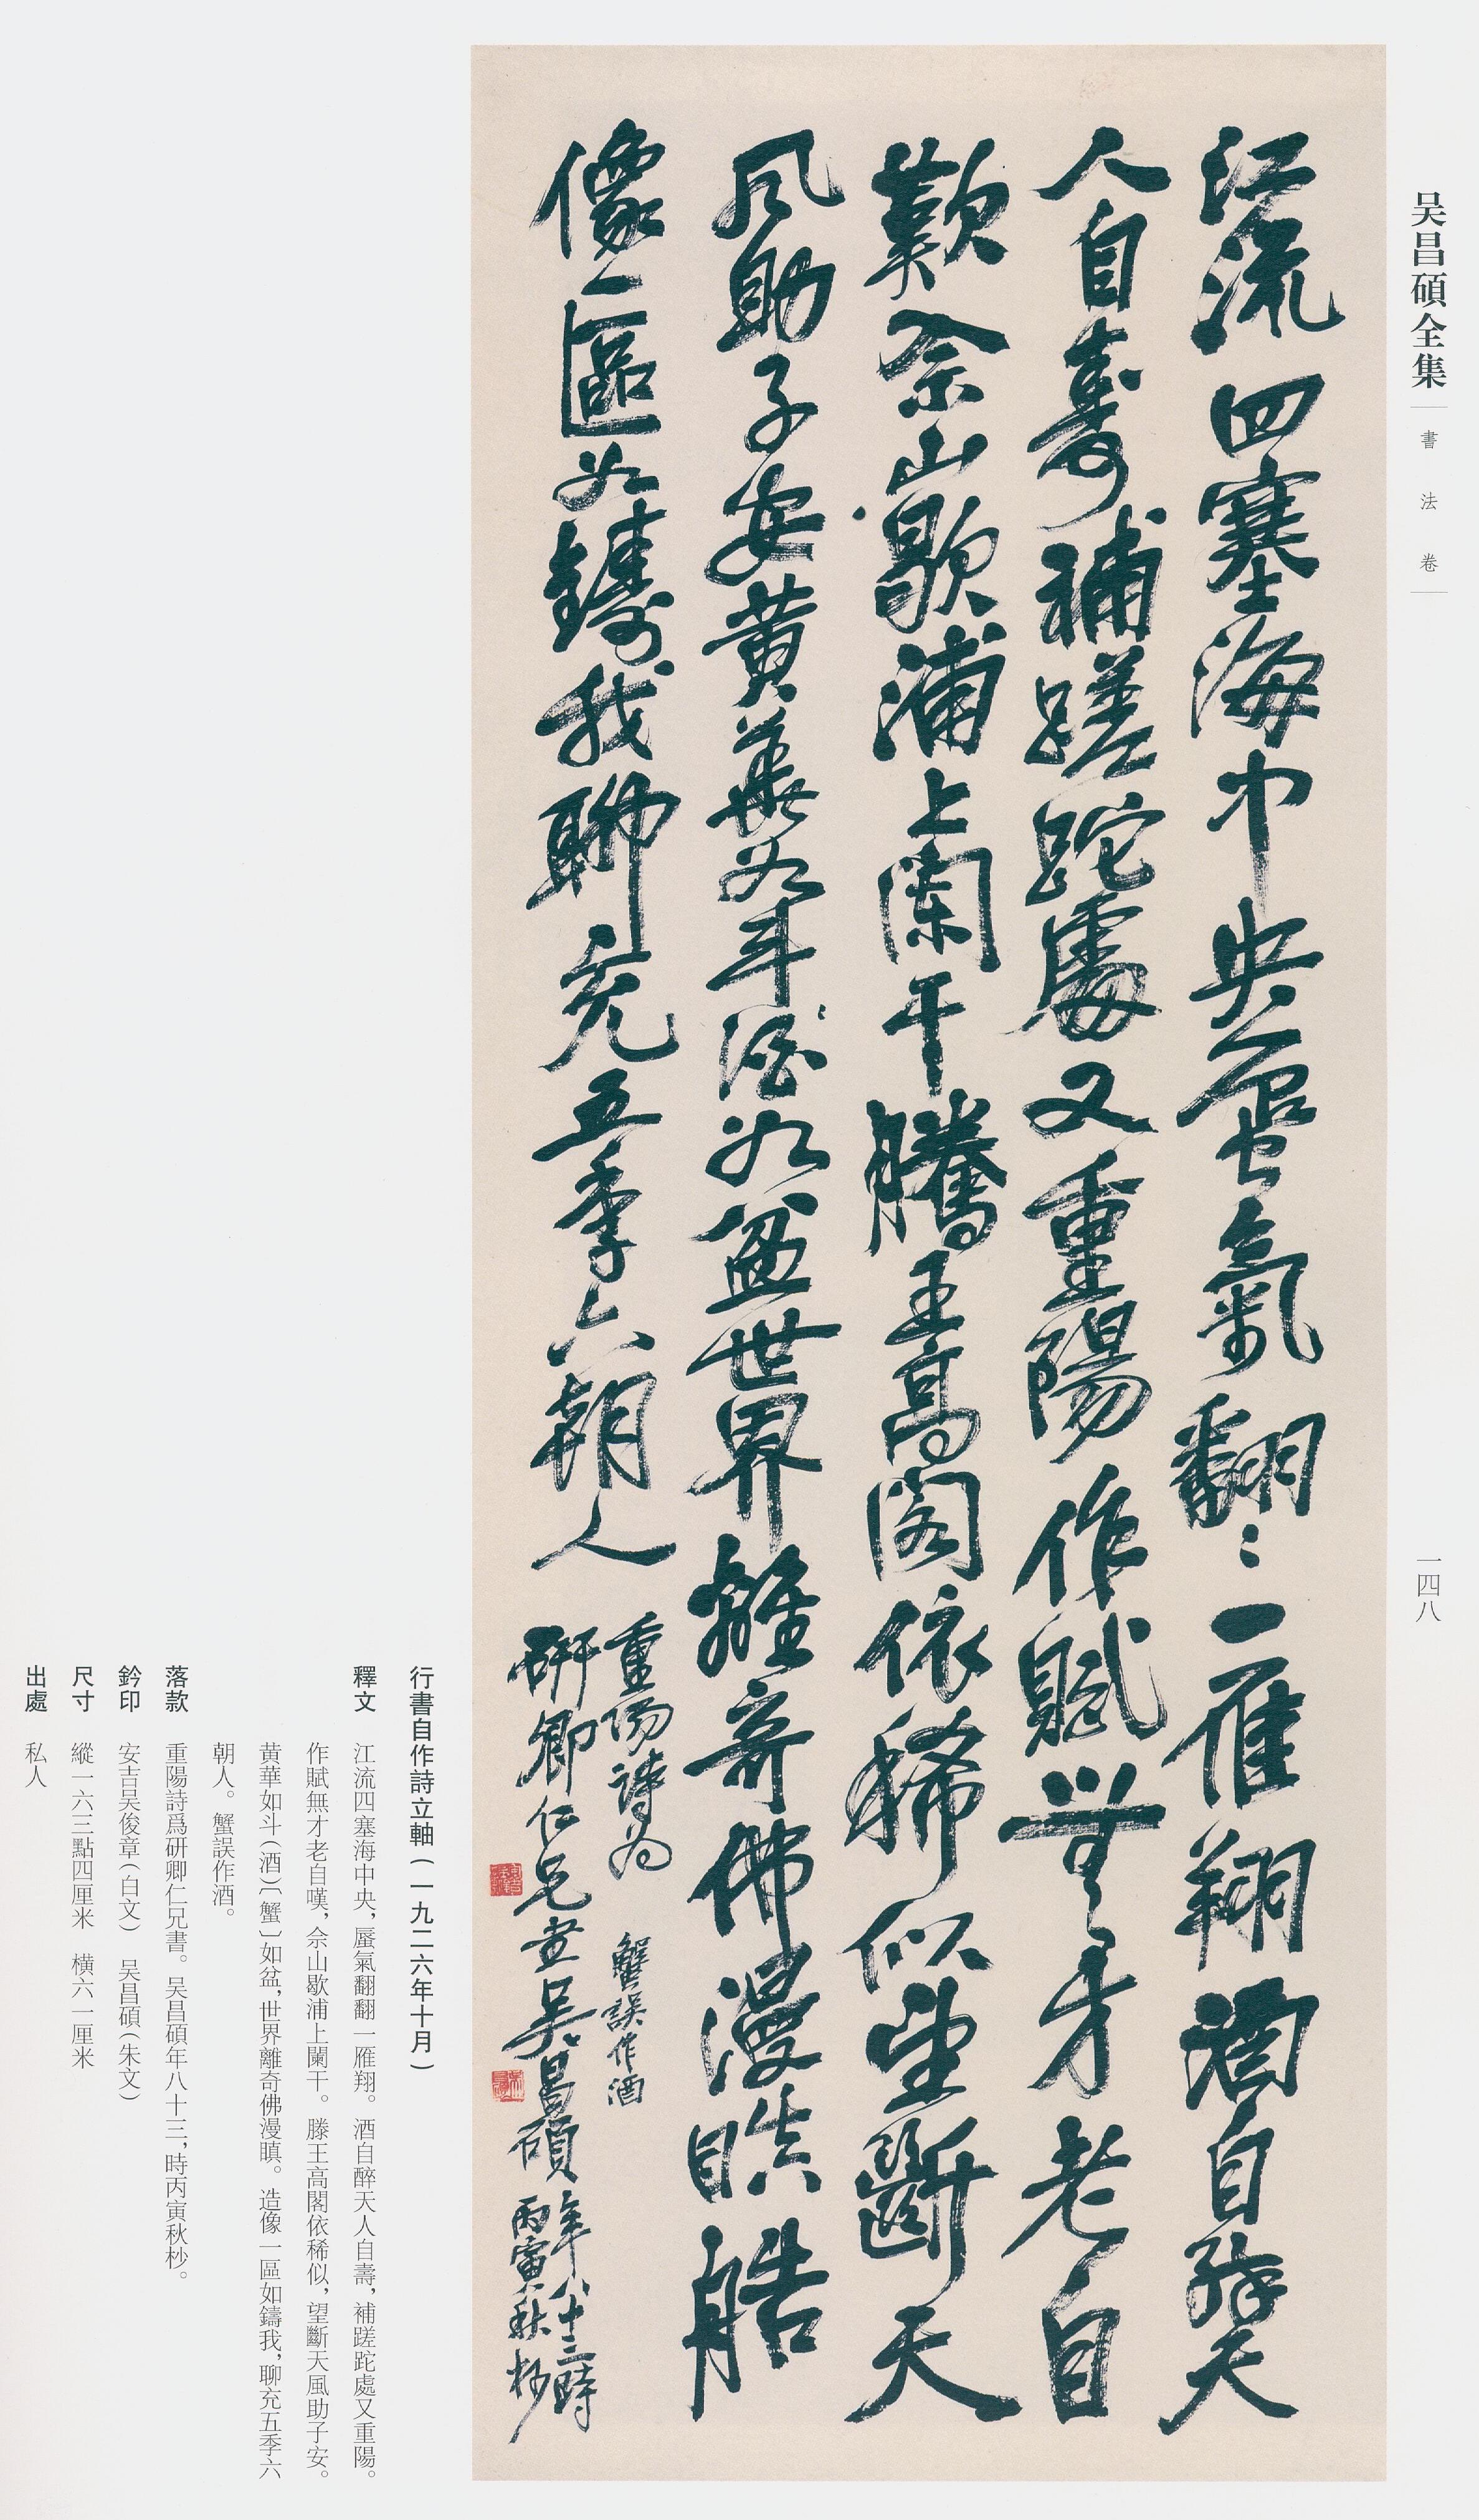 吴昌碩全集
書法卷
一四八
江流四塞海中央蜃氣翻〻一雁翔酒自醉天
人自壽補蹉跎處又重陽作賦無才老自
歎佘山歇浦上闌干滕王高閣依稀似望斷天
風助子安黃華如斗酒如盆世界離奇佛漫瞋艁
像一區如鑄我聊充五季六朝人
重陽詩為
蟹誤作酒
研卿仁兄書吳昌碩年八十三時
丙寅秋杪
行書自作詩立軸(一九二六年十月)
釋文 江流四塞海中央,蜃氣翻翻一雁翔。酒自醉天人自壽,補蹉跎處又重陽。
作賦無才老自嘆,佘山歇浦上闌干。滕王高閣依稀似,望斷天風助子安。
黄華如斗(酒)〔蟹〕如盆,世界離奇佛漫瞋。造像一區如鑄我,聊充五季六
朝人。蟹誤作酒。
落款 重陽詩爲研卿仁兄書。吴昌碩年八十三,時丙寅秋杪。
鈐印 安吉吴俊章(白文) 吴昌碩(朱文)
尺寸 縱一六三點四厘米 横六一厘米
出處 私人